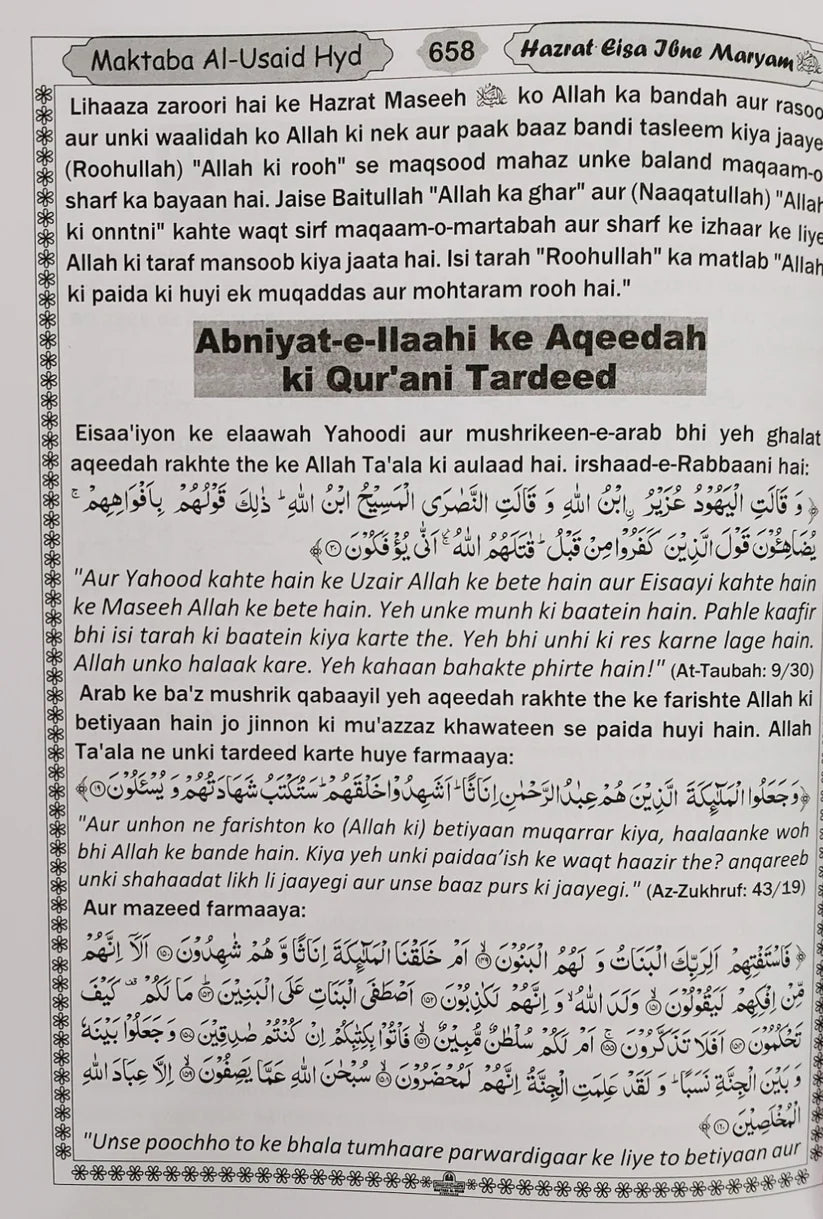 Maktaba Al-Usaid Hyd
658
Hazrat Eisa Ibne Maryam
Lihaaza zaroori hai ke Hazrat Maseeh ko Allah ka bandah aur rasoo
aur unki waalidah ko Allah ki nek aur paak baaz bandi tasleem kiya jaaye
(Roohullah) "Allah ki rooh" se maqsood mahaz unke baland maqaam-o
sharf ka bayaan hai. Jaise Baitullah "Allah ka ghar" aur (Naaqatullah) "Allah
ki onntni" kahte waqt sirf maqaam-o-martabah aur sharf ke izhaar ke liye
Allah ki taraf mansoob kiya jaata hai. Isi tarah "Roohullah" ka matlab "Allah
ki paida ki huyi ek muqaddas aur mohtaram rooh hai."
Abniyat-e-Ilaahi ke Aqeedah
ki Qur'ani Tardeed
Eisaa'iyon ke elaawah Yahoodi aur mushrikeen-e-arab bhi yeh ghalat
aqeedah rakhte the ke Allah Ta'ala ki aulaad hai. irshaad-e-Rabbaani hai:
﴿وَ قَالَتِ الْيَهُوْدُ عُزَيْرُ ِۨابْنُ اللّٰهِ وَ قَالَتِ النَّصٰرَى الْمَسِيْحُ ابْنُ اللّٰهِ ؕ ذٰلِكَ قَوْلُهُمْ بِاَفْوَاهِهِمْ ۚ
يُضَاهِـُٔوْنَ قَوْلَ الَّذِيْنَ كَفَرُوْا مِنْ قَبْلُ ؕ قٰتَلَهُمُ اللّٰهُ ۚ اَنّٰى يُؤْفَكُوْنَ ۝۳۰﴾
"Aur Yahood kahte hain ke Uzair Allah ke bete hain aur Eisaayi kahte hain
ke Maseeh Allah ke bete hain. Yeh unke munh ki baatein hain. Pahle kaafir
bhi isi tarah ki baatein kiya karte the. Yeh bhi unhi ki res karne lage hain.
Allah unko halaak kare. Yeh kahaan bahakte phirte hain!" (At-Taubah: 9/30)
Arab ke ba'z mushrik qabaayil yeh aqeedah rakhte the ke farishte Allah ki
betiyaan hain jo jinnon ki mu'azzaz khawateen se paida huyi hain. Allah
Ta'ala ne unki tardeed karte huye farmaaya:
﴿وَ جَعَلُوا الْمَلٰٓىِٕكَةَ الَّذِيْنَ هُمْ عِبٰدُ الرَّحْمٰنِ اِنَاثًا ؕ اَشَهِدُوْا خَلْقَهُمْ ؕ سَتُكْتَبُ شَهَادَتُهُمْ وَ يُسْـَٔلُوْنَ ۝۱۹﴾
"Aur unhon ne farishton ko (Allah ki) betiyaan muqarrar kiya, haalaanke woh
bhi Allah ke bande hain. Kiya yeh unki paidaa’ish ke waqt haazir the? anqareeb
unki shahaadat likh li jaayegi aur unse baaz purs ki jaayegi." (Az-Zukhruf: 43/19)
Aur mazeed farmaaya:
﴿فَاسْتَفْتِهِمْ اَلِرَبِّكَ الْبَنَاتُ وَ لَهُمُ الْبَنُوْنَ ۝۱۴۹ اَمْ خَلَقْنَا الْمَلٰٓىِٕكَةَ اِنَاثًا وَّ هُمْ شٰهِدُوْنَ ۝۱۵۰ اَلَاۤ اِنَّهُمْ
مِّنْ اِفْكِهِمْ لَيَقُوْلُوْنَ ۝۱۵۱ وَلَدَ اللّٰهُ ۙ وَ اِنَّهُمْ لَكٰذِبُوْنَ ۝۱۵۲ اَصْطَفَى الْبَنَاتِ عَلَى الْبَنِيْنَ ۝۱۵۳ مَا لَكُمْ كَيْفَ
تَحْكُمُوْنَ ۝۱۵۴ اَفَلَا تَذَكَّرُوْنَ ۝۱۵۵ اَمْ لَكُمْ سُلْطٰنٌ مُّبِيْنٌ ۝۱۵۶ فَاْتُوْا بِكِتٰبِكُمْ اِنْ كُنْتُمْ صٰدِقِيْنَ ۝۱۵۷ وَ جَعَلُوْا بَيْنَهٗ
وَ بَيْنَ الْجِنَّةِ نَسَبًا ؕ وَ لَقَدْ عَلِمَتِ الْجِنَّةُ اِنَّهُمْ لَمُحْضَرُوْنَ ۝۱۵۸ سُبْحٰنَ اللّٰهِ عَمَّا يَصِفُوْنَ ۝۱۵۹ اِلَّا عِبَادَ اللّٰهِ
الْمُخْلَصِيْنَ ۝۱۶۰﴾
"Unse poochho to ke bhala tumhaare parwardigaar ke liye to betiyaan aur